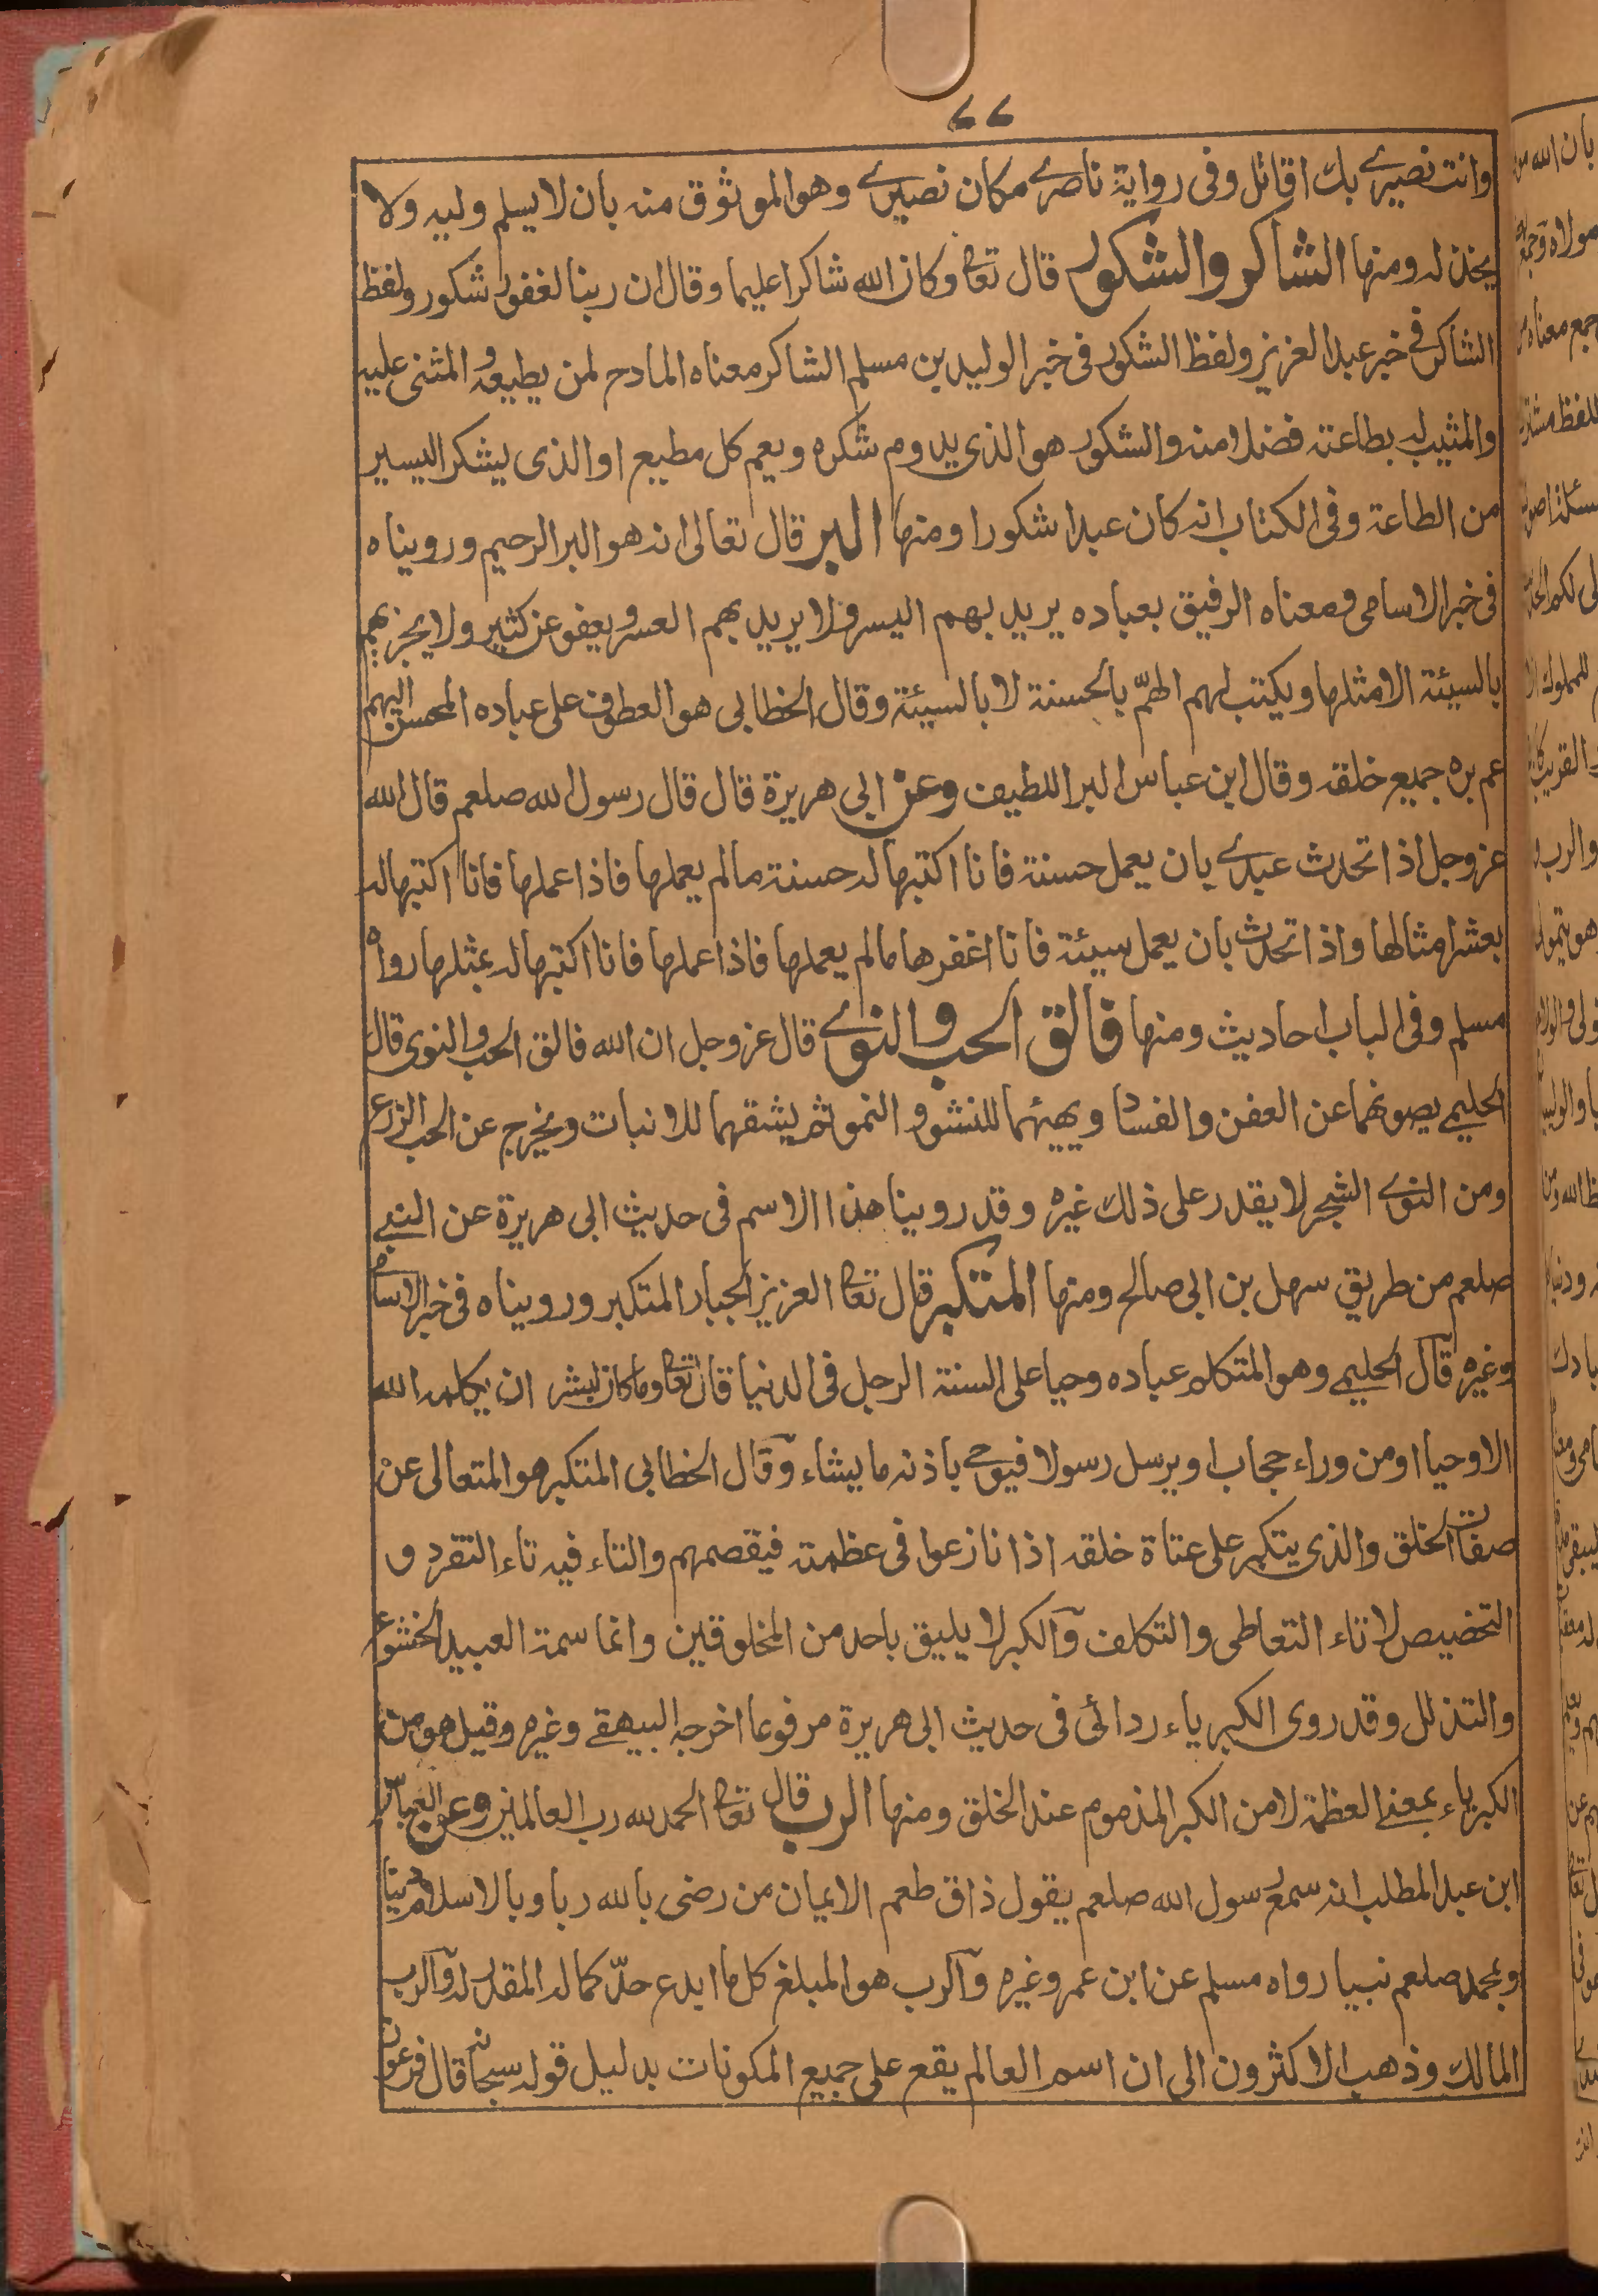 ٢٢
وانت نصيرى بك اقاتل وفى رواية ناصرى مكان نصيرى وهو الموثوق منه بان لا يسلم وليه ولا
يخذله ومنها الشاكر والشكور قال تعا وكان الله شاكرا عليما وقال ان ربنا لغفور شكور ولفظ
الشاكر فى خبر عبد العزيز ولفظ الشكور فى خبر الوليد بن مسلم الشاكر معناه المادح لمن يطيعه والمثنى عليه
والمثيب له بطاعته فضلا منه والشكور هو الذى يدوم شكره ويعم كل مطيع او الذى يشكر اليسير
من الطاعة وفى الكتاب انه كان عبدا شكورا ومنها البر قال تعالى انه هو البر الرحيم ورويناه
فى خبر الاسامى ومعناه الرفيق بعباده يريد بهم اليسر ولا يريد بهم العسر ويعفو عن كثير ولا يجزيهم
بالسيئة الا مثلها ويكتب لهم الهمّ بالحسنة لا بالسيئة وقال الخطابى هو العطوف على عباده المحسن اليهم
عم بره جميع خلقه وقال ابن عباس البر اللطيف وعن ابى هريرة قال قال رسول الله صلعم قال الله
عز وجل اذا تحدث عبدى بان يعمل حسنة فانا اكتبها له حسنة ما لم يعملها فاذا عملها فانا اكتبها له
بعشر امثالها واذا تحدث بان يعمل سيئة فانا اغفرها ما لم يعملها فاذا عملها فانا اكتبها له بمثلها رواه
مسلم وفى الباب احاديث ومنها فالق الحب والنوى قال عز وجل ان الله فالق الحب والنوى قال
الحليمى يصونهما عن العفن والفساد ويهيئهما للنشو والنمو ثم يشقهما للانبات ويخرج عن الحب الزرع
ومن النوى الشجر لا يقدر على ذلك غيره وقد روينا هذا الاسم فى حديث ابى هريرة عن النبى
صلعم من طريق سهل بن ابى صالح ومنها المتكبر قال تعا العزيز الجبار المتكبر ورويناه فى خبر الاسامى
وغيره قال الحليمى وهو المتكلم عباده وحيا على السنة الرجل فى الدنيا قال تعا وما كان لبشر ان يكلمه الله
الا وحيا او من وراء حجاب او يرسل رسولا فيوحى باذنه ما يشاء وقال الخطابى المتكبر هو المتعالى عن
صفات الخلق والذى يتكبر على عتاة خلقه اذا نازعوا فى عظمته فيقصمهم والتاء فيه تاء التفرد و
التخصيص لا تاء التعاطى والتكلف والكبر لا يليق باحد من المخلوقين وانما سمة العبيد الخشوع
والتذلل وقد روى الكبرياء ردائى فى حديث ابى هريرة مرفوعا اخرجه البيهقى وغيره وقيل هو من
الكبرياء بمعنى العظمة لا من الكبر المذموم عند الخلق ومنها الرب قال تعا الحمد لله رب العالمين وعن العباس
ابن عبد المطلب انه سمع رسول الله صلعم يقول ذاق طعم الايمان من رضى بالله ربا وبالاسلام دينا
وبمحمد صلعم نبيا رواه مسلم عن ابن عمر وغيره والرب هو المبلغ كل ما ابدع حدّ كماله المقدر له والرب
المالك وذهب الاكثرون الى ان اسم العالم يقع على جميع المكونات بدليل قوله سبحانه قال فرعون